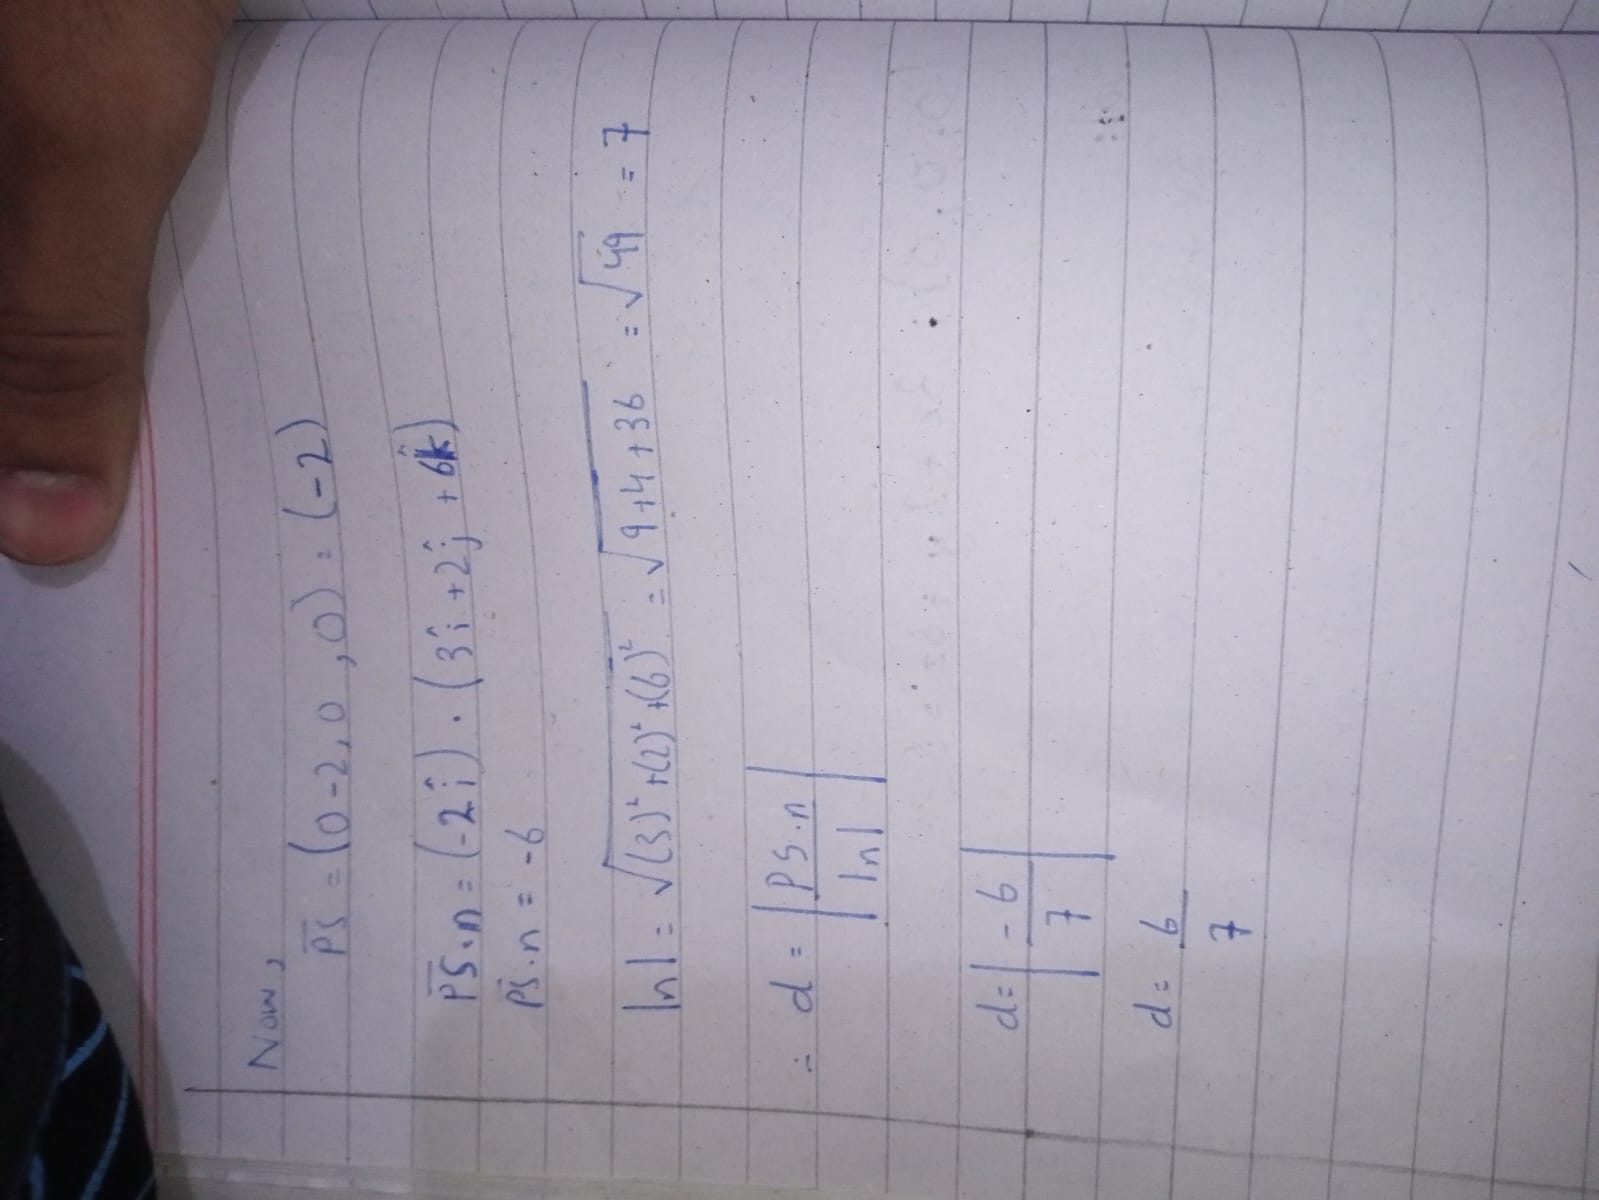 Now,
PS = (0-2, 0, 0) = (-2)
PS·n = (-2î)·(3î+2ĵ+6k̂)
PS·n = -6
|n| = √(3)²+(2)²+(6)² = √9+4+36 = √49 = 7
∴ d = |PS·n / |n||
d = |-6/7|
d = 6/7